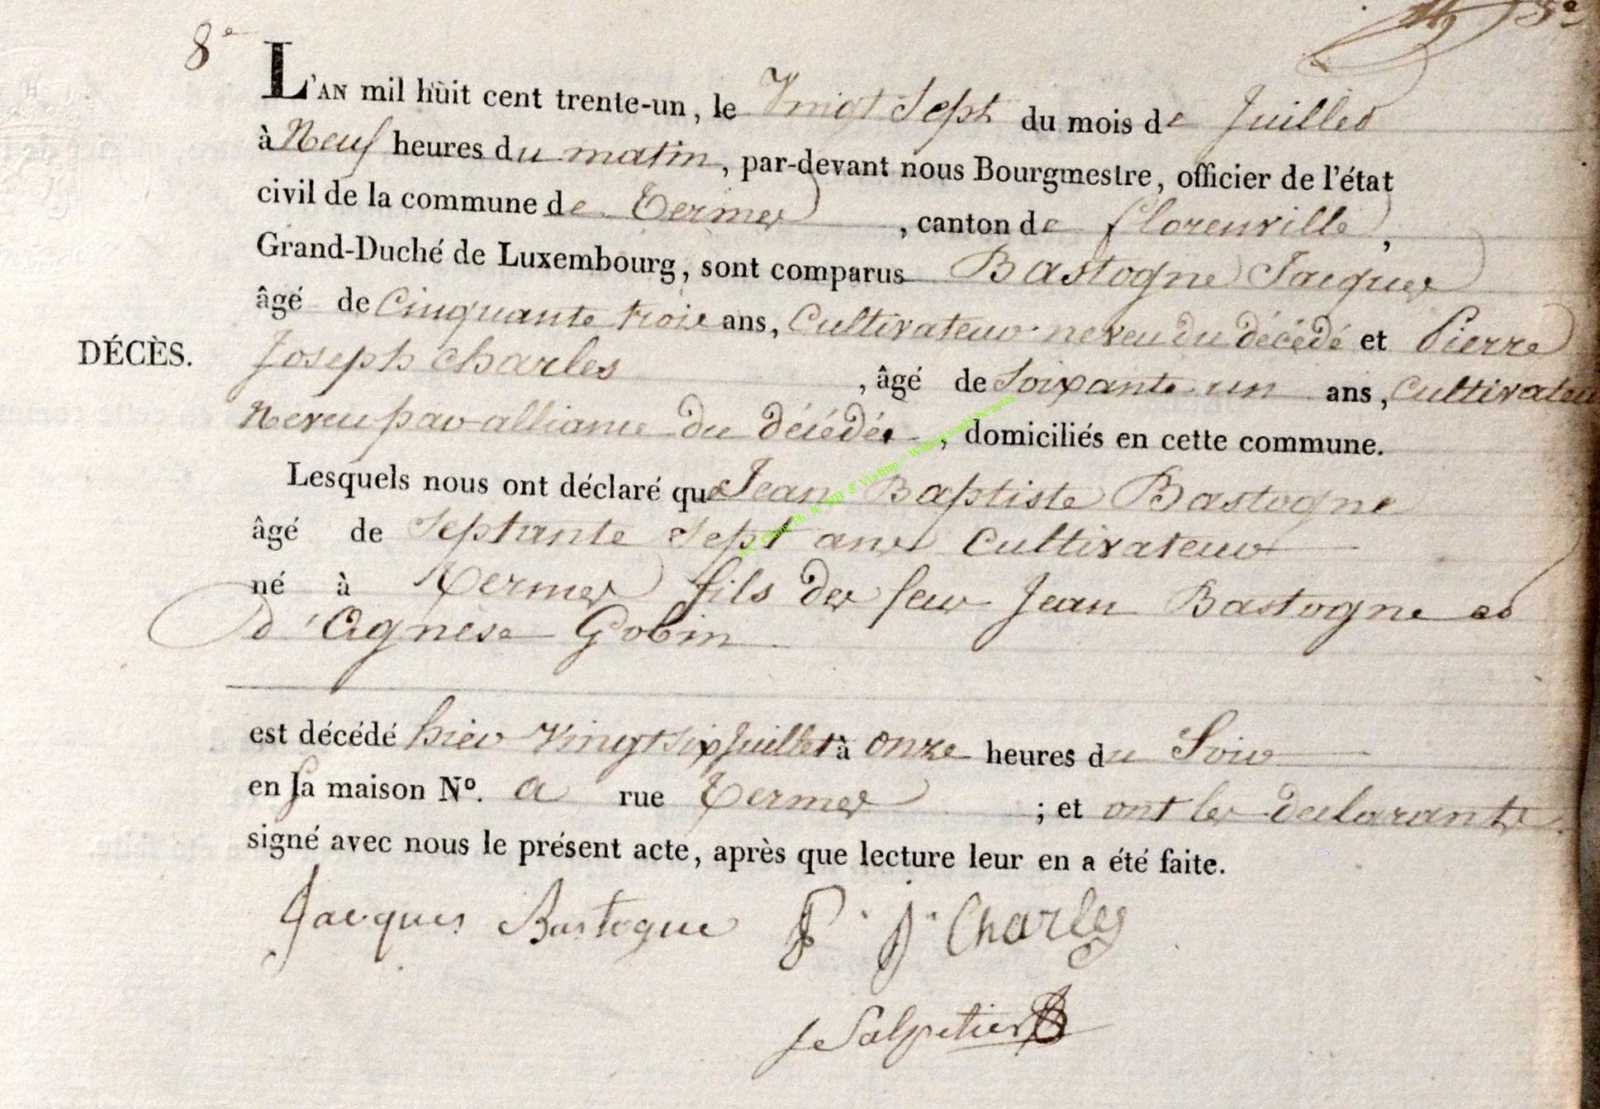 8e
L'AN mil huit cent trente-un, le Vingt Sept du mois de Juillet
à Neuf heures du matin, par-devant nous Bourgmestre, officier de l'état
civil de la commune de Termes, canton de florenville,
Grand-Duché de Luxembourg, sont comparus Bastogne Jacques
âgé de Cinquante trois ans, Cultivateur neveu du décédé et Pierre
DÉCÈS.
Joseph Charles, âgé de Soixante un ans, Cultivateur
Neveu par alliance du décédé, domiciliés en cette commune.
Lesquels nous ont déclaré que Jean Baptiste Bastogne
âgé de Septante Sept ans Cultivateur
né à Termes fils des feu Jean Bastogne et
d'Agnèse Gobin
est décédé hier Vingt six Juillet à onze heures du Soir
en sa maison No. a rue Termes ; et ont les declarants
signé avec nous le présent acte, après que lecture leur en a été faite.
Jacques Bastogne P. J. Charles
Salpetier